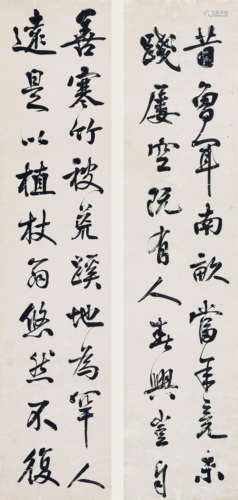 昔曾聞南畝當年竟未
踐屢空既有人春興豈自
善寒竹被荒蹊地為罕人
遠是以植杖翁悠然不復